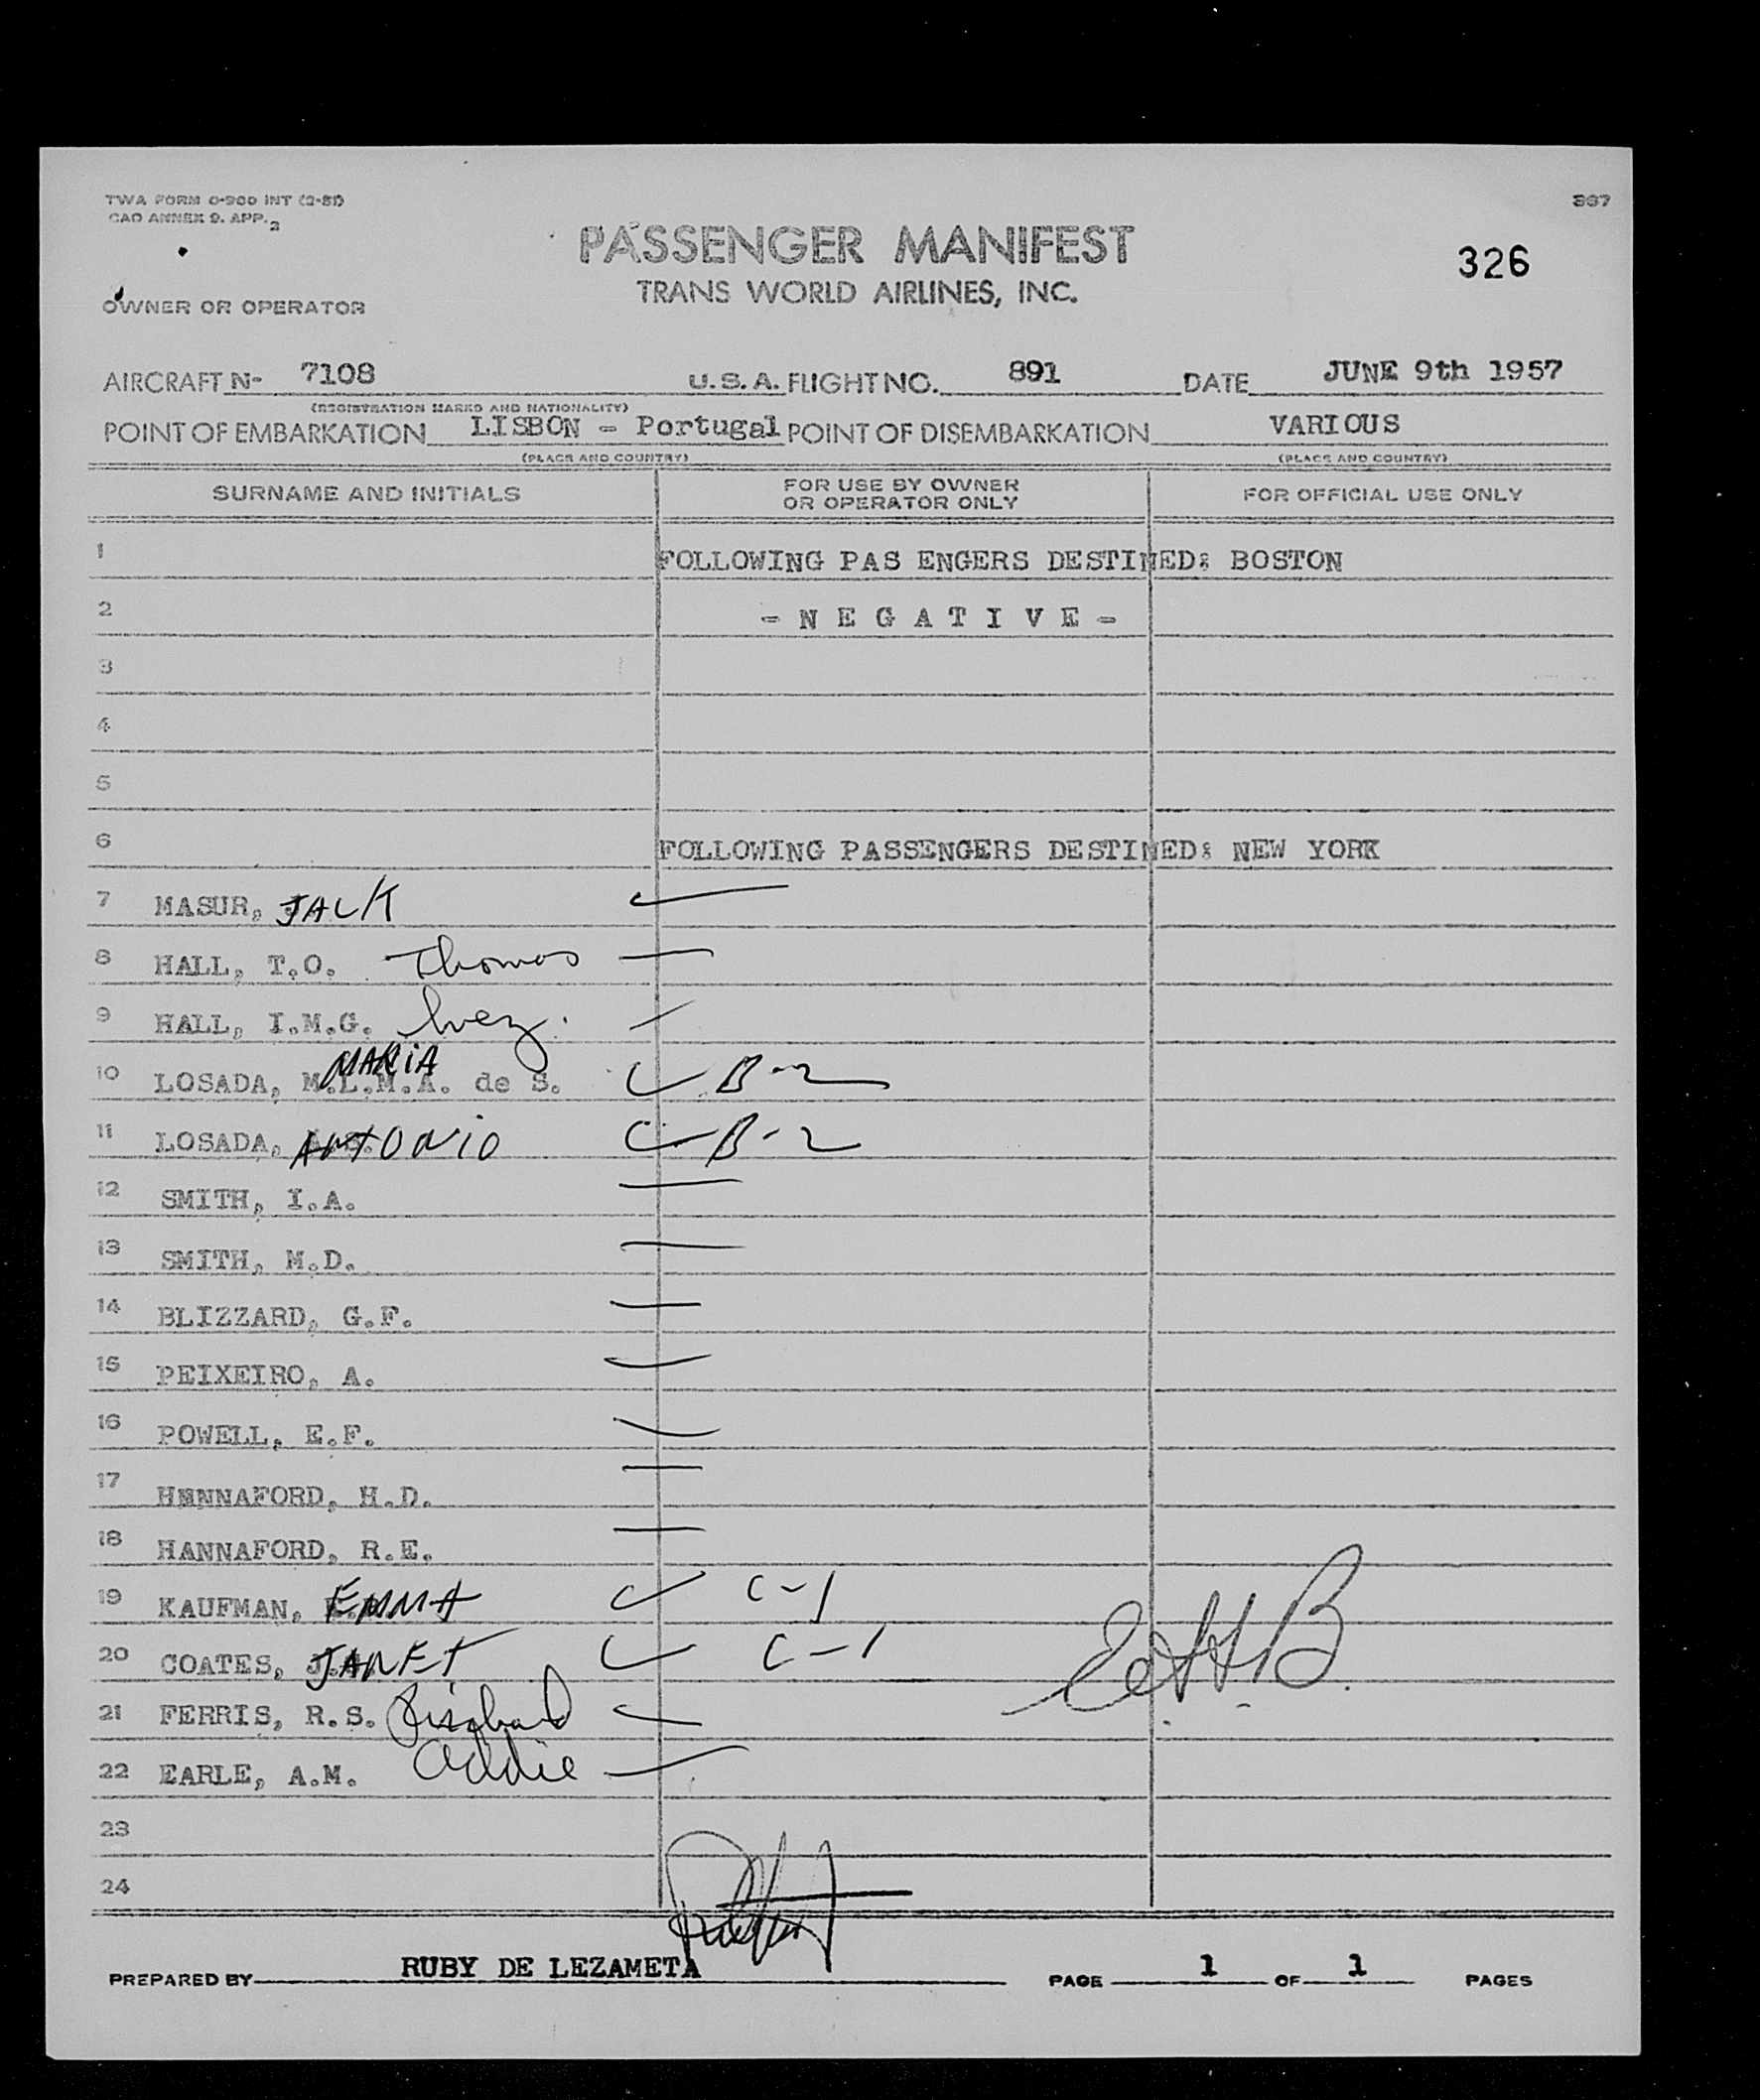 TWA FORM 0-900 INT (2-51)
CAO ANNEX 9. APP. 2
PASSENGER MANIFEST
326
TRANS WORLD AIRLINES, INC.
OWNER OR OPERATOR
AIRCRAFT N- 7108 U.S.A. FLIGHT NO. 891 DATE JUNE 9th 1957
(REGISTRATION MARKS AND NATIONALITY)
POINT OF EMBARKATION LISBON - Portugal POINT OF DISEMBARKATION VARIOUS
(PLACE AND COUNTRY) (PLACE AND COUNTRY)
SURNAME AND INITIALS FOR USE BY OWNER OR OPERATOR ONLY FOR OFFICIAL USE ONLY
1 FOLLOWING PAS ENGERS DESTINED: BOSTON
2 - N E G A T I V E -
3
4
5
6 FOLLOWING PASSENGERS DESTINED: NEW YORK
7 MASUR, JACK
8 HALL, T.O. Thomas
9 HALL, I.M.G. Inez.
MARIA
10 LOSADA, M.L.M.A. de S. B-2
11 LOSADA, ANTONIO B-2
12 SMITH, I.A.
13 SMITH, M.D.
14 BLIZZARD, G.F.
15 PEIXEIRO, A.
16 POWELL, E.F.
17 HANNAFORD, H.D.
18 HANNAFORD, R.E.
19 KAUFMAN, EMMA C-1
20 COATES, JANET C-1
21 FERRIS, R.S. Richard
22 EARLE, A.M. Addie
23
24
PREPARED BY RUBY DE LEZAMETA PAGE 1 OF 1 PAGES